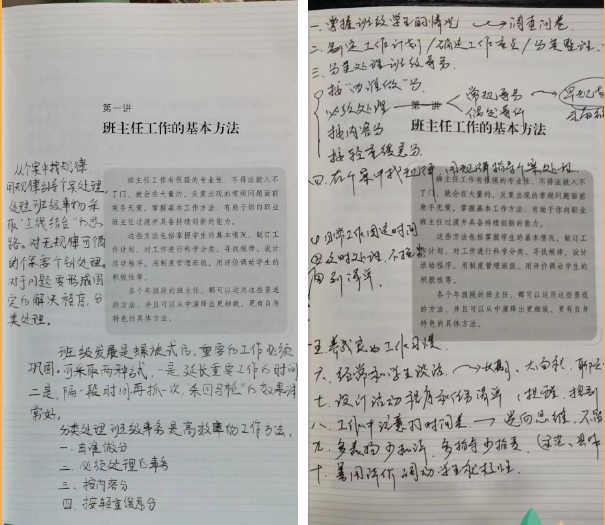 第一讲
班主任工作的基本方法
从个案中找规律
用规律指导个案处理。
处理班级事物采
取“点线结合”的思
路。对无规律可循
的个案要个别处理。
对于问题要形成固
定的解决程序,分
类处理。
班主任工作有很强的专业性,不得法就入不
了门,就会在大量的、反复出现的常规问题面前
束手无策。掌握基本工作方法,有助于你向职业
班主任过渡并具备持续创新的能力。
这些方法包括掌握学生的基本情况、制订工
作计划、对工作进行科学分类、寻找规律、设计
活动程序、用制度管理班级、用评价调动学生的
积极性等。
各个年级段的班主任,都可以运用这些普适
的方法,并且可以从中演绎出更细致、更有自身
特色的具体方法。
班级发展是螺旋式的,重要的工作必须
巩固。可采取两种方式,一是延长重要工作的时间
二是,隔一段时间再抓一次,杀回马枪”的效果非
常好。
分类处理班级事务是高效率的工作方法,
一、由谁做分
二、必须处理的事务
三、按内容分
四、按轻重缓急分
一、掌握班级学生的情况 → 调查问卷
二、制定工作计划/确定工作重点/
三、分类处理班级事务
按“由谁做”分
必须处理 常规事务
偶发事件
按内容分
按轻重缓急分
第一讲
班主任工作的基本方法
四、在个案中找规律,用规律指导个案处理。
班主任工作有很强的专业性,不得法就入不
了门,就会在大量的、反复出现的常规问题面前
束手无策。掌握基本工作方法,有助于你向职业
班主任过渡并具备持续创新的能力。
这些方法包括掌握学生的基本情况、制订工
作计划、对工作进行科学分类、寻找规律、设计
活动程序、用制度管理班级、用评价调动学生的
积极性等。
各个年级段的班主任,都可以运用这些普适
的方法,并且可以从中演绎出更细致、更有自身
特色的具体方法。
日常工作固定时间
及时处理,不拖
列清单
五、养成良好的工作习惯
六、经常和学生谈话
七、设计活动程序和任务清单
八、工作中注意打时间差 → 逆向思维,
九、多表扬少批评,多指导少指责
十、善用评价调动学生积极性。